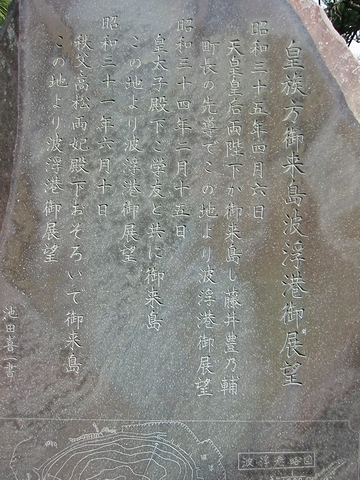 皇族方御来島波浮港御展望
昭和三十五年四月六日
天皇皇后両陛下が御来島し藤井豊乃輔
町長の先導でこの地より波浮港御展望
昭和三十四年二月十五日
皇太子殿下ご学友と共に御来島
この地より波浮港御展望
昭和三十一年六月十日
秩父高松両妃殿下おそろいで御来島
この地より波浮港御展望
池田喜一書
波浮港略図